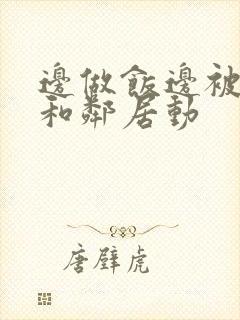 邊做飯邊被
和鄰居動
唐璧虎